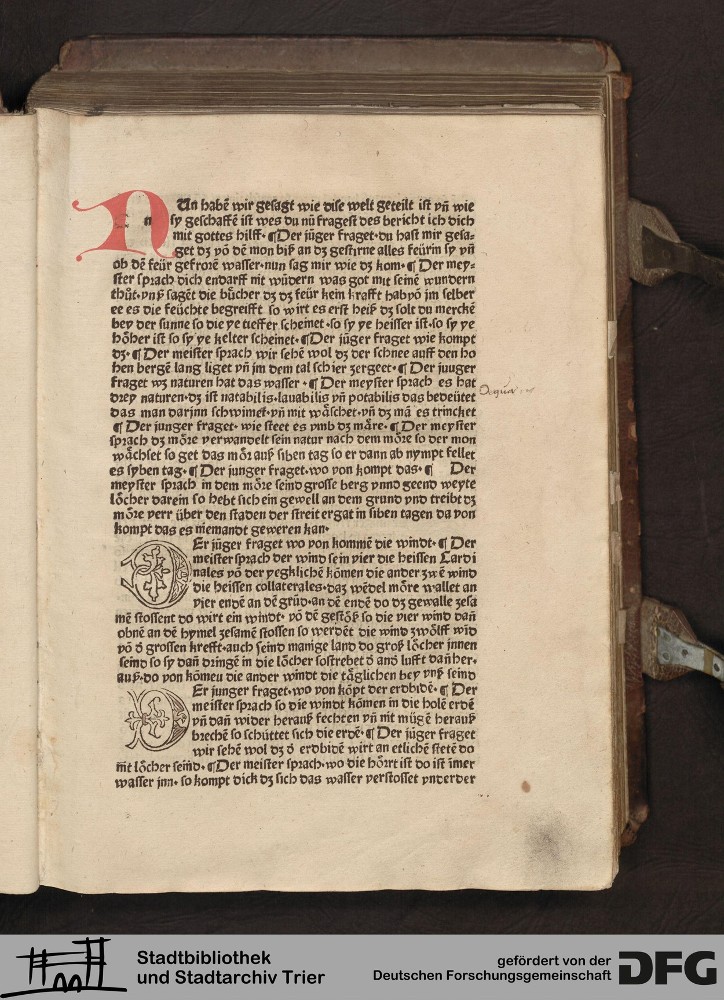 Un habē wir gesagt wie dise welt geteilt ist yn̄ wie
sy geschaffē ist wes du nū fragest des bericht ich dich
mit gottes hilff. ¶ Der jüger fraget. du hast mir gesa-
get dz võ dē mon biß an dz gestirne alles feürin sy yn̄
ob dē feür gefrorē wasser. nun sag mir wie dz kom. ¶ Der mey-
ster sprach dich endarff nit wūdern was got mit seinē wundern
thůt. vnß sagēt die bücher dz dz feür kein krafft hab võ jm selber
ee es die feüchte begreifft so wirt es erst heiß dz solt du merckē
bey der sunne so die ye tieffer scheinet. so sy ye heisser ist. so sy ye
höher ist so sy ye kelter scheinet. ¶ Der jüger fraget wie kompt
dz. ¶ Der meister sprach wir sehē wol dz der schnee auff den ho
hen bergē lang liget yn̄ jm dem tal schier zergeet. ¶ Der juuger
fraget wz naturen hat das wasser. ¶ Der meyster sprach es hat
drey naturen. dz ist natabilis. lauabilis yn̄ potabilis das bedeütet
das man darjnn schwimet. yn̄ mit wäschet. yn̄ dz mā es trincket
¶ Der junger fraget. wie steet es vmb dz märe. ¶ Der meyster
sprach dz möre verwandelt sein natur nach dem möre so der mon
wächset so get das mör auß siben tag so er dann ab nympt fellet
es syben tag. ¶ Der junger fraget. wo von kompt das. ¶ Der
meyster sprach in dem möre seind grosse berg vnnd geend weyte
löcher darein so hebt sich ein gewell an dem grund vnd treibt dz
möre verr über den staden der streit ergat in siben tagen da von
kompt das es niemandt geweren kan.
Er jüger fraget wo von kommē die windt. ¶ Der
meister sprach der wind sein vier die heissen Cardi
nales võ der yegklichē kömen die ander zwē wind
die heissen collaterales. daz wēdel möre wallet an
vier endē an dē grūd. an dē endē do dz gewalle zesa
mē stossent do wirt ein windt. võ dē gestöß so die vier wind dan̄
obnē an dē hymel zesamē stossen so werdēt die wind zwölff wīd
võ d̄ grossen krefft. auch seind manige land do groß löcher jnnen
seind so sy dan̄ dringē in die löcher so strebet d̄ and lufft dan̄ her.
auß. do von kömen die ander windt die täglichen bey vnß seind
Er junger fraget. wo von kōpt der erdbidē. ¶ Der
meister sprach so die windt kömen in die holē erdē
yn̄ dan̄ wider herauß fechten yn̄ nit mügē herauß
brechē so schüttet sich die erdē. ¶ Der jüger fraget
wir sehē wol dz d̄ erdbidē wirt an etlichē stetē do
nit löcher seind. ¶ Der meister sprach. wo die hörrt ist do ist īmer
wasser jnn. so kompt dick dz sich das wasser verstosset vnder der
Stadtbibliothek
und Stadtarchiv Trier
gefördert von der
Deutschen Forschungsgemeinschaft
DFG